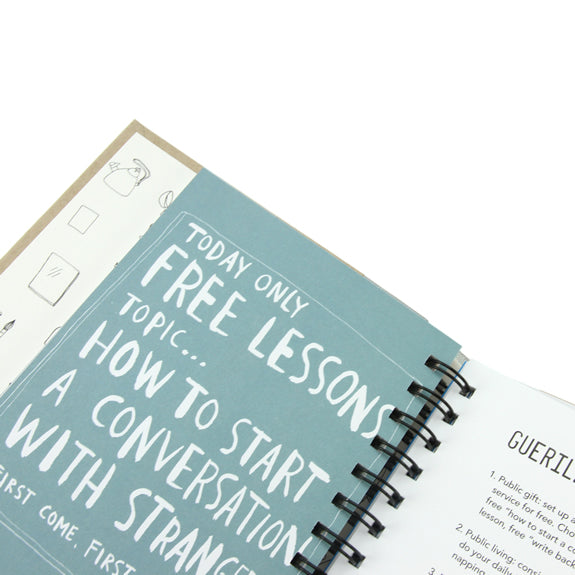 TODAY ONLY
FREE LESSONS
TOPIC...
HOW TO START
A CONVERSATION
WITH
FIRST COME, FIRST
1. Public gift: set up a
service for free.
free "how to start a
lesson, free "write
2. Public living:
do your daily
napping
3.